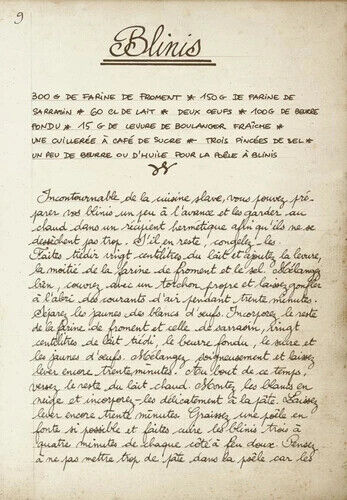 9
Blinis
300 G DE FARINE DE FROMENT * 150 G DE FARINE DE
SARRASIN * 60 CL DE LAIT * DEUX OEUFS * 100 G DE BEURRE
FONDU * 15 G DE LEVURE DE BOULANGER FRAÎCHE *
UNE CUILLERÉE À CAFÉ DE SUCRE * TROIS PINCÉES DE SEL *
UN PEU DE BEURRE OU D'HUILE POUR LA POÊLE À BLINIS
Incontournable de la cuisine slave, vous pouvez pré-
parer vos blinis un peu à l'avance et les garder au
chaud dans un récipient hermétique afin qu'ils ne se
dessèchent pas trop. S'il en reste, congelez-les.
Faites tiédir vingt centilitres du lait et ajoutez la levure,
la moitié de la farine de froment et le sel. Mélangez
bien, couvrez avec un torchon propre et laissez gonfler
à l'abri des courants d'air pendant trente minutes.
Séparez les jaunes des blancs d'oeufs. Incorporez le reste
de la farine de froment et celle de sarrasin, vingt
centilitres de lait tiédi, le beurre fondu, le sucre et
les jaunes d'oeufs. Mélangez soigneusement et laissez
lever encore trente minutes. Au bout de ce temps,
versez le reste du lait chaud. Montez les blancs en
neige et incorporez-les délicatement à la pâte. Laissez
lever encore trente minutes. Graissez une poêle en
fonte si possible et faites cuire les blinis trois à
quatre minutes de chaque côté à feu doux. Pensez
à ne pas mettre trop de pâte dans la poêle car les